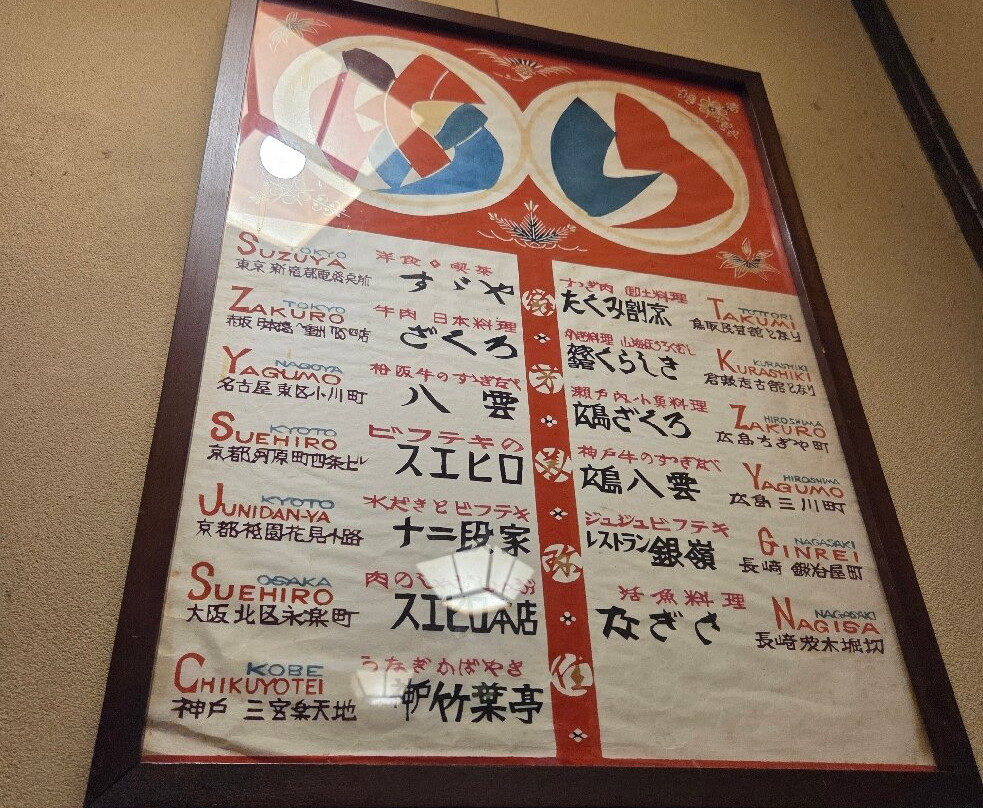 TOKYO
SUZUYA
洋食 喫茶
すゞや
TOKYO
ZAKURO
牛肉 日本料理
ざくろ
NAGOYA
YAGUMO
名古屋東区小川町
八雲
KYOTO
SUEHIRO
京都河原町四条上ル
ビフテキの
スエヒロ
KYOTO
JUNIDAN-YA
京都祇園花見小路
水だきとビフテキ
十二段家
OSAKA
SUEHIRO
大阪北区永楽町
肉の
スエヒロ本店
KOBE
CHIKUYOTEI
神戸 三宮楽天地
うなぎかばやき
神戸竹葉亭
味
美
弥
住
たくみ割烹
TOTTORI
TAKUMI
鳥取民芸館となり
くらしき
KURASHIKI
KURASHIKI
倉敷考古館となり
瀬戸内小魚料理
広島ざくろ
HIROSHIMA
ZAKURO
広島ちぎや町
神戸牛のすきなべ
広島八雲
HIROSHIMA
YAGUMO
広島三川町
ジュジュビフテキ
レストラン銀嶺
NAGASAKI
GINREI
長崎 鍛冶屋町
活魚料理
なぎさ
NAGASAKI
NAGISA
長崎茂木堀切